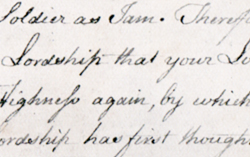 Soldier as I am. Theref
Lordship that your Lo
Highneſs again, by which
ordship has first though